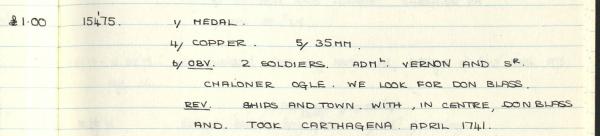 £1.00 15.4.75. 1/ MEDAL.
4/ COPPER. 5/ 35MM.
6/ OBV. 2 SOLDIERS. ADML. VERNON AND SR.
CHALONER OGLE. WE LOOK FOR DON BLASS.
REV. SHIPS AND TOWN. WITH, IN CENTRE, DON BLASS
AND. TOOK CARTHAGENA. APRIL 1741.